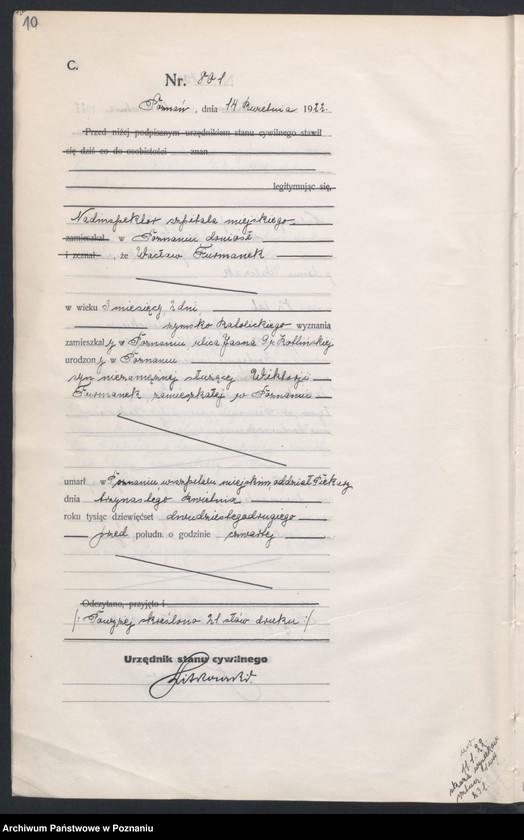 10
C.
Nr. 881
Poznań, dnia 14 kwietnia 1922.
Przed niżej podpisanym urzędnikiem stanu cywilnego stawił
się dziś co do osobistości znan
legitymując się,
Nadinspektor szpitala miejskiego
zamieszkał w Poznaniu doniósł
i zeznał, że Wacław Furmanek
w wieku 3 miesięcy, 2 dni,
rzymsko katolickiego wyznania
zamieszkały w Poznaniu ulica Jasna
urodzony w Poznaniu
syn niezamężnej służącej Wiktorji
Furmanek zamieszkałej w Poznaniu
umarł w Poznaniu, w szpitalu miejskim, oddział Piekary
dnia trzynastego kwietnia
roku tysiąc dziewięćset dwudziestegodrugiego
przed połudn. o godzinie czwartej
Odczytano, przyjęto i
/: Powyżej skreślono 21 słów druku :/
Urzędnik stanu cywilnego
Archiwum Państwowe w Poznaniu